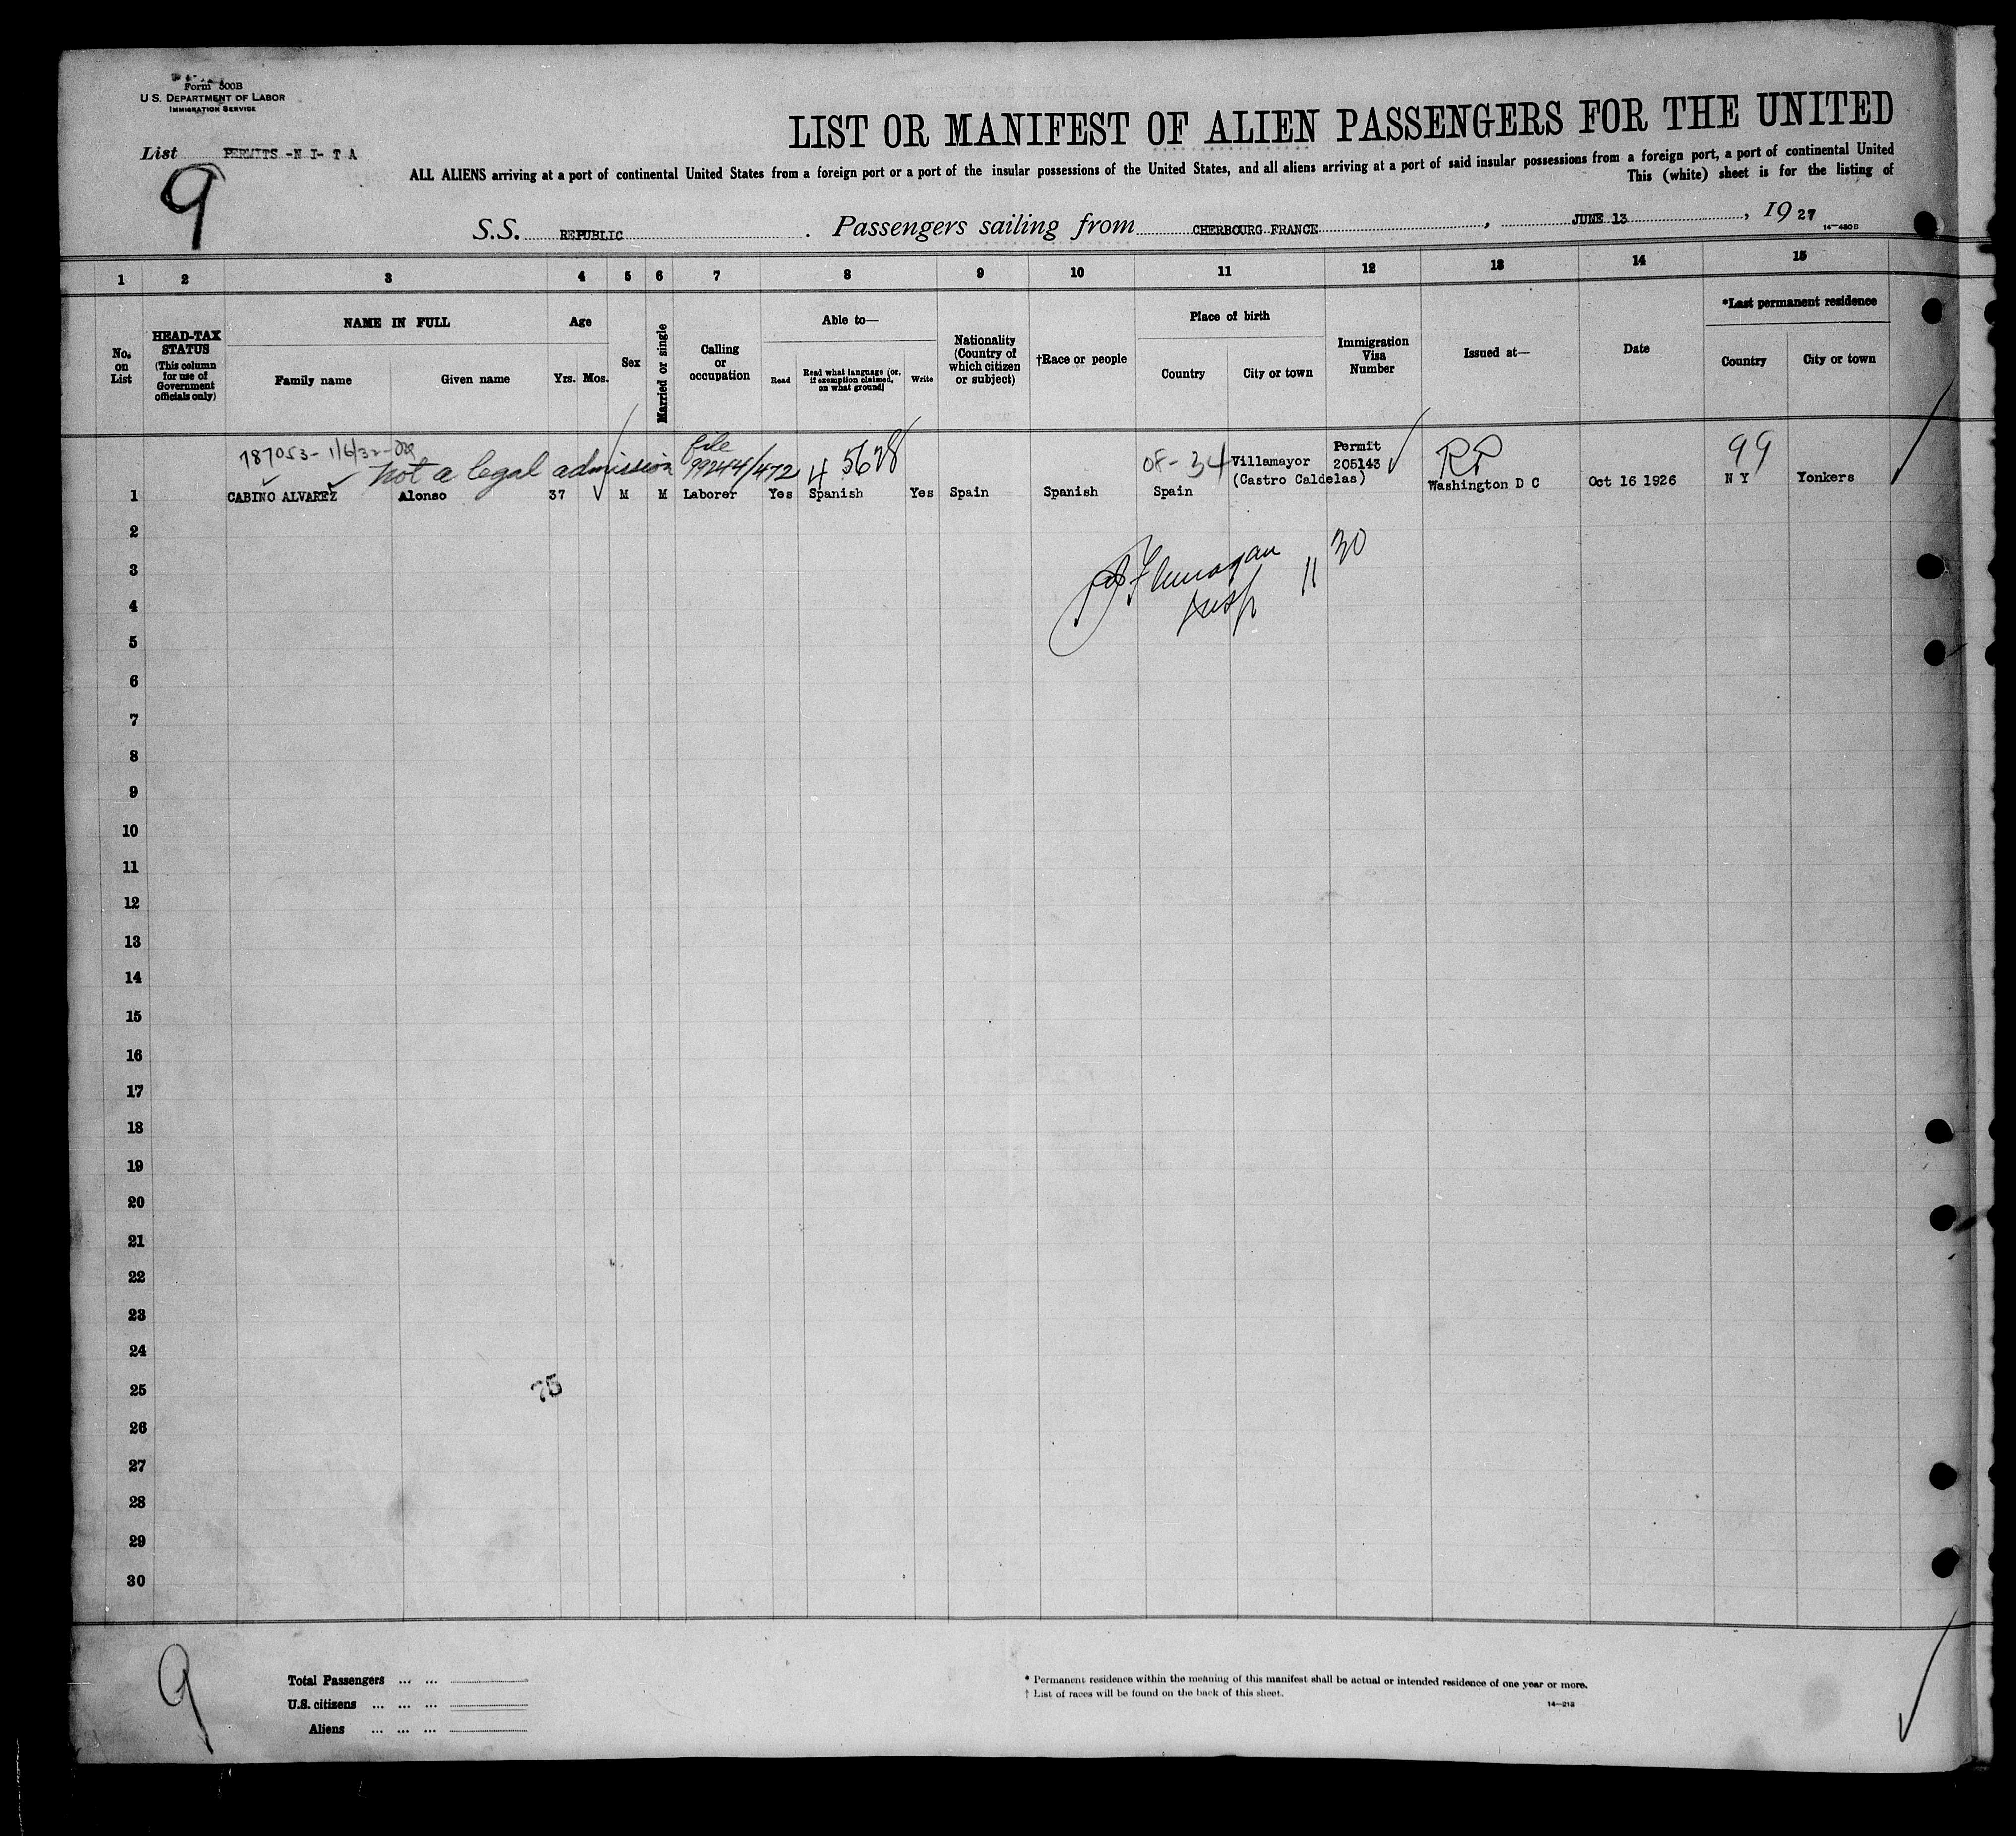 Form 500B
U. S. DEPARTMENT OF LABOR
IMMIGRATION SERVICE
List PERMITS -N I- T A
9
LIST OR MANIFEST OF ALIEN PASSENGERS FOR THE UNITED
ALL ALIENS arriving at a port of continental United States from a foreign port or a port of the insular possessions of the United States, and all aliens arriving at a port of said insular possessions from a foreign port, a port of continental United
This (white) sheet is for the listing of
S.S. REPUBLIC . Passengers sailing from CHERBOURG FRANCE , JUNE 13 , 19 27
14—480 B
1 2 3 4 5 6 7 8 9 10 11 12 13 14 15
No. on List
HEAD-TAX STATUS (This column for use of Government officials only)
NAME IN FULL
Family name
Given name
Age
Yrs. Mos.
Sex
Married or single
Calling or occupation
Able to—
Read
Read what language (or, if exemption claimed, on what ground)
Write
Nationality (Country of which citizen or subject)
†Race or people
Place of birth
Country
City or town
Immigration Visa Number
Issued at—
Date
*Last permanent residence
Country
City or town
787053- 1/6/32-
Not a legal admission
file 99244/472
4 5628
08-34
Villamayor
(Castro Caldelas)
Permit
205143
RP
99
1 CABINO ALVAREZ Alonso 37 M M Laborer Yes Spanish Yes Spain Spanish Spain Washington D C Oct 16 1926 N Y Yonkers
2
Flanagan 11 30
Insp
3
4
5
6
7
8
9
10
11
12
13
14
15
16
17
18
19
20
21
22
23
24
25
75
26
27
28
29
30
9
Total Passengers ... ...
U.S. citizens ... ... ...
Aliens ... ... ...
* Permanent residence within the meaning of this manifest shall be actual or intended residence of one year or more.
† List of races will be found on the back of this sheet.
14—213